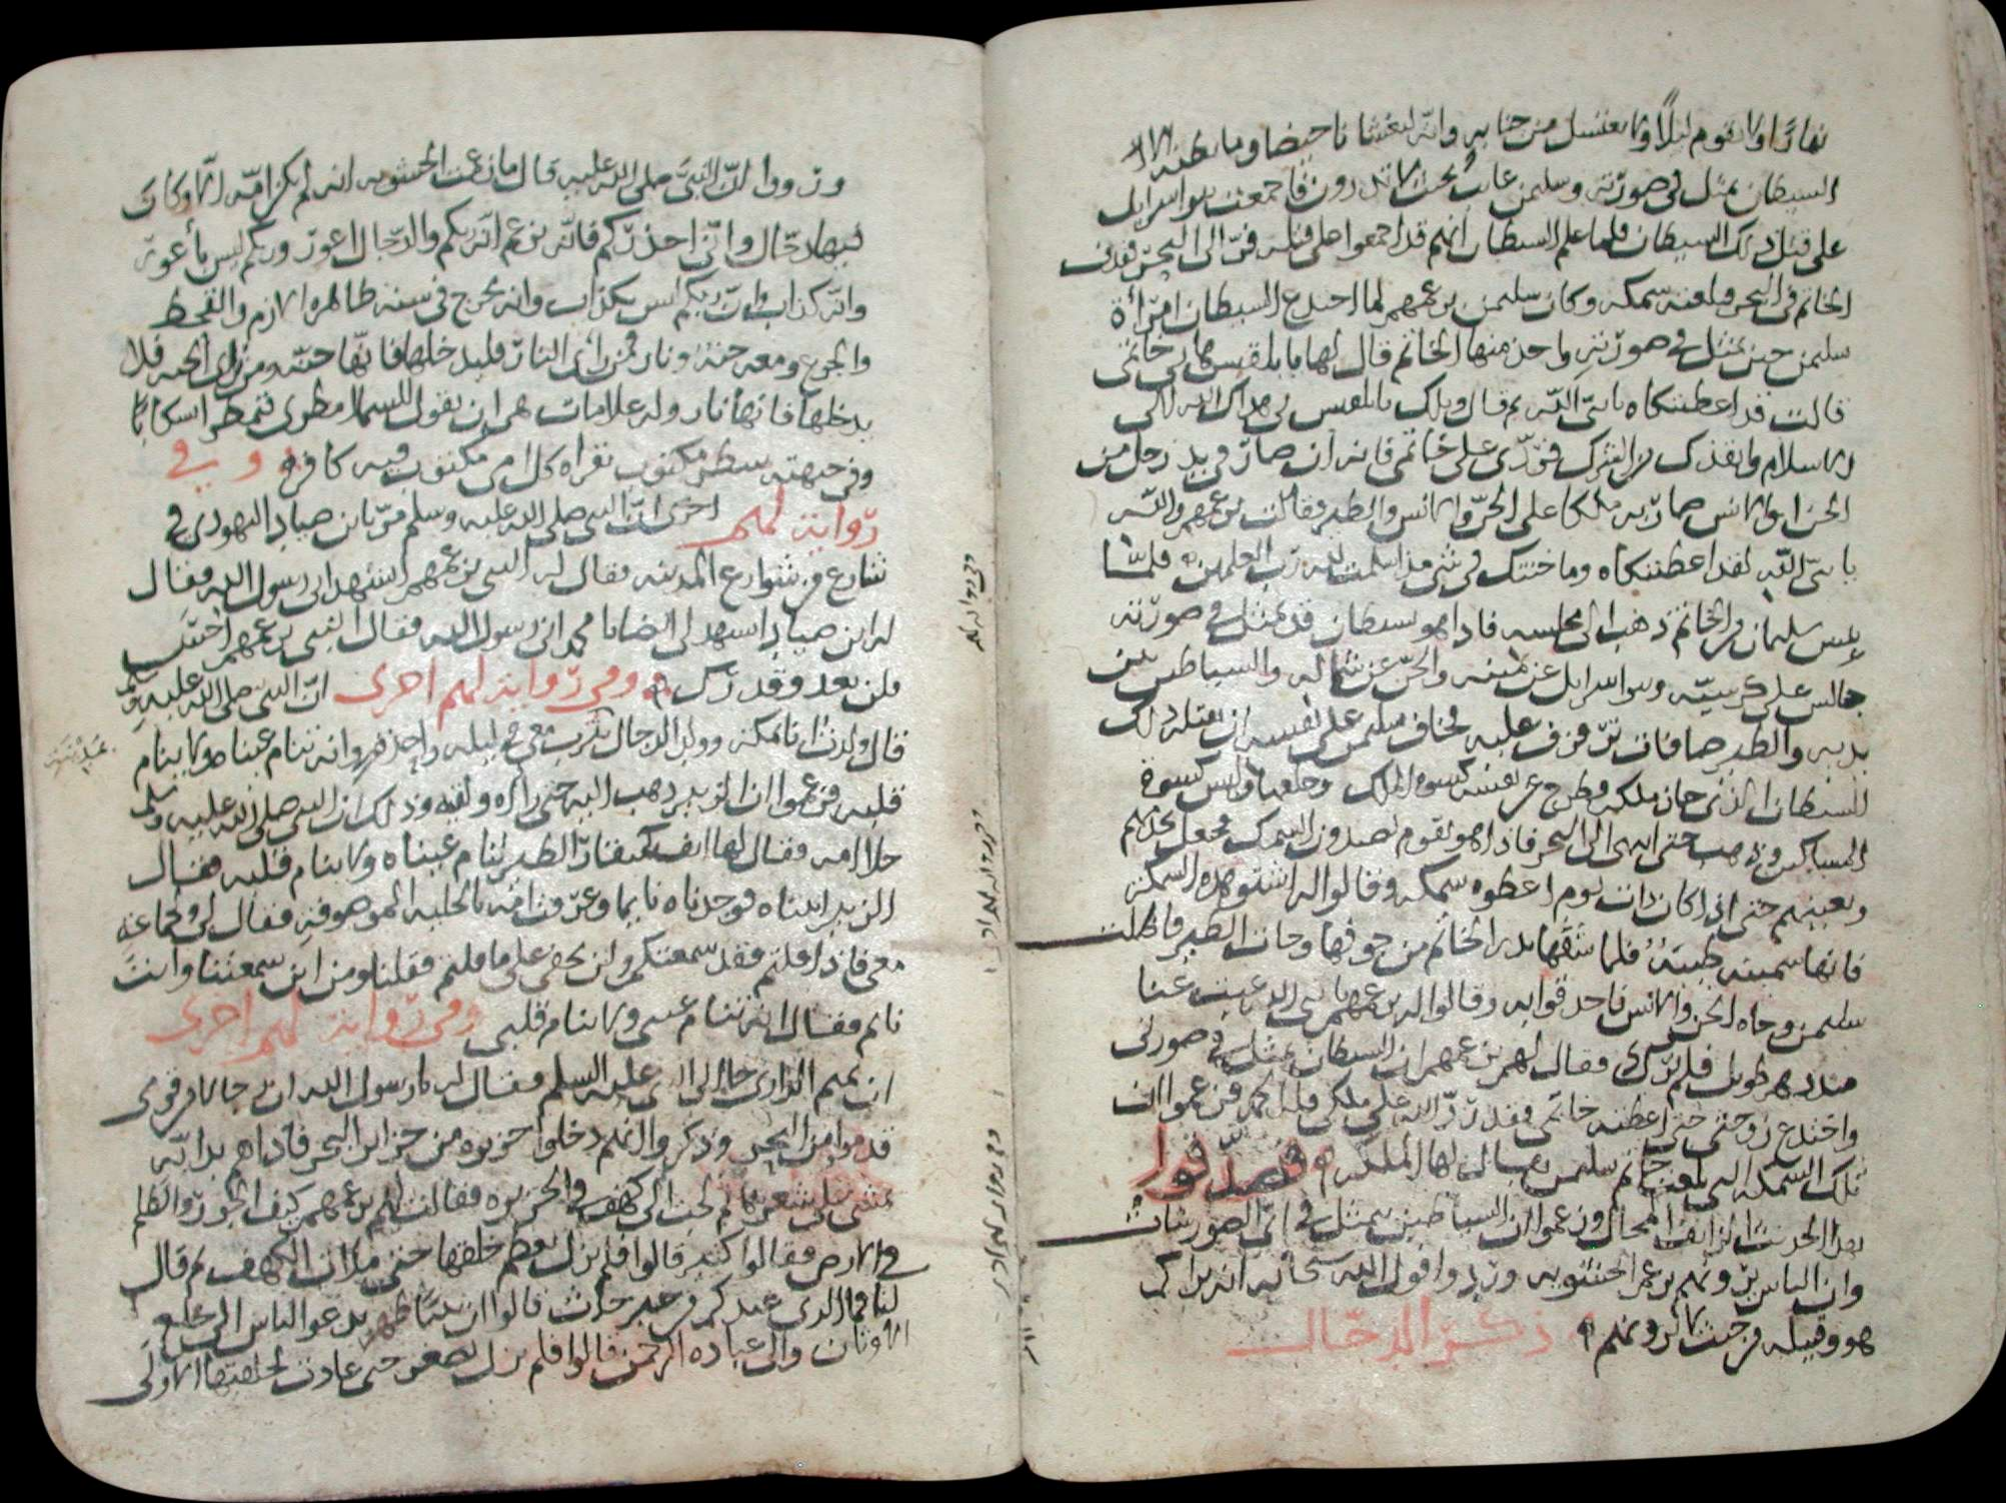 نهارًا ولا يقوم ليلًا ولا يغتسل من جنابه وانه ليغشانا حيضا وما نظنه الا
الشيطان تمثل في صورته وسليمن غائب بحيث لا تدرون فاجمعت بنو اسرايل
على قتل ذلك الشيطان فلما علم الشيطان انهم قد اجمعوا على قتله فرّ الى البحر فقذف
الخاتم في البحر فبلعته سمكه وكان سليمن بزعمهم لما اختدع الشيطان امرأة
سليمن حين تمثل في صورته واخذ منها الخاتم قال لها يا بلقيس هاتي خاتمي
قالت قد اعطيتكاه يا نبيّ الله ثم قال ويلك يا بلقيس بي هداك الله الى
الاسلام وانقذك من الشرك فردّي على خاتمي فانه ان صار في يد رجل من
الجن او الانس صار به ملكا على الجنّ والانس والطير فقالت بزعمهم والله
يا نبيّ الله لقد اعطيتكاه وما خنتك في شي مذ اسلمت لله رب العلمين فلمّا
يئس سليمان من الخاتم ذهب الى مجلسه فاذا هو بشيطان قد تمثل في صورته
جالس على كرسيّه وبنو اسرايل عن يمينه والجنّ عن شماله والشياطين بين
يديه والطير صافات ترفرف عليه فخاف سليمن على نفسه ان يقتله ذلك
الشيطان الذي حاز ملكه فطرح عن نفسه كسوة الملك وخلعها ولبس كسوة
المساكين وذهب حتى انتهى الى البحر فاذا هو بقوم يصيدون السمك فجعل يخدمهم
ويعينهم حتى اذا كان ذات يوم اعطوه سمكه وقالوا له اشتو هذه السمكه
فانها سمينه طيبة فلما شقها بدر الخاتم من جوفها وجات الطير فاظلت
سليمن وجاه الجن والانس فاحدقوا به وقالوا له بزعمهم يا نبي الله غبت عنا
منذ دهر طويل فلم نرك فقال لهم بزعمهم ان الشيطان تمثل في صورتي
واختدع زوجتي حتى اعطته خاتمي فقد ردّ الله علي ملكي فله الحمد فزعموا ان
تلك السمكه التي بلعت خاتم سليمن يقال لها فصدّقوا
بهذا الحديث الزائف المحال وزعموا ان الشياطين تتمثل في ايّ الصور شات
وان الناس يرونهم بزعم الحشويه وردوا قول الله سبحانه انه يراكم
هو وقبيله من حيث لا ترونهم ذكر الدجّال
ورووا انّ النبيّ صلى الله عليه قال ما زعمت الحشويه انه لم يكن امّه الا وكان
فيها دجّال وانّي احذركم فانّه يزعم انّه ربكم والدجّال اعور وربكم ليس بأعور
وانّه كذاب وانّ ربكم ليس بكذاب وانه يخرج في سنه ظاهره الازم والقحط
والجوع ومعه جنة ونار فمن رأى النار فليدخلها فانّها جنّه ومن رأى الجنه فلا
يدخلها فانها نار وله علامات هي ان يقول للسما امطري فتمطر
وفي جبهته سطر مكتوب يقراه كل امي مكتوب فيه كافر وفي
رواية لهم اخرى انّ النبي صلى الله عليه وسلم مرّ بابن صياد اليهودي في
شارع من شوارع المدينه فقال له النبي بزعمهم اتشهد اني رسول الله فقال
له ابن صياد اتشهد لي ايضا يا محمد اني رسول الله فقال النبي بزعمهم
فلن تعدو قدرك وفي رواية لهم اخرى انّ النبي صلى الله عليه وسلم
قال ولدت انا بمكه وولد الدجال بيثرب معي في ليله واحده وانه تنام عيناه ولا ينام
قلبه فزعموا ان الزبير ذهب اليه حتى راه ولقيه وذلك ان النبي صلى الله عليه وسلم
فقال لها انف كمنقار الطير تنام عيناه ولا ينام قلبه فقال
الزبير اتيناه فوجدناه نايما وعرفت امّه بالحليه الموصوفه فقال لي ولجماعه
معي فاذا قلتم فقد سمعتكم ولن يخفى علي ما قلتم فقلنا ومن اين سمعتنا وانت
نائم فقال انه تنام عيني ولا ينام قلبي وفي رواية لهم اخرى
ان تميم الداري جا الى النبي عليه السلم فقال له يا رسول الله ان رجالا من قومي
قدموا من البحر وذكروا انهم دخلوا جزيره من جزاير البحر فاذا هم بدابّه
الى كهف في الجزيره فقالت لهم بزعمهم كيف الجور والظلم
في الارض فقالوا كثير قالوا فلم يزل يعظم خلقها حتى ملات الكهف ثم قال
لنا فما الذي عندكم من خبر حادث قالوا ان نبيًّا ظهر يدعو الناس الى خلع
الاوثان والى عبادة الرحمن قالوا فلم يزل يصغر حتى عادت لخلقتها الاولى